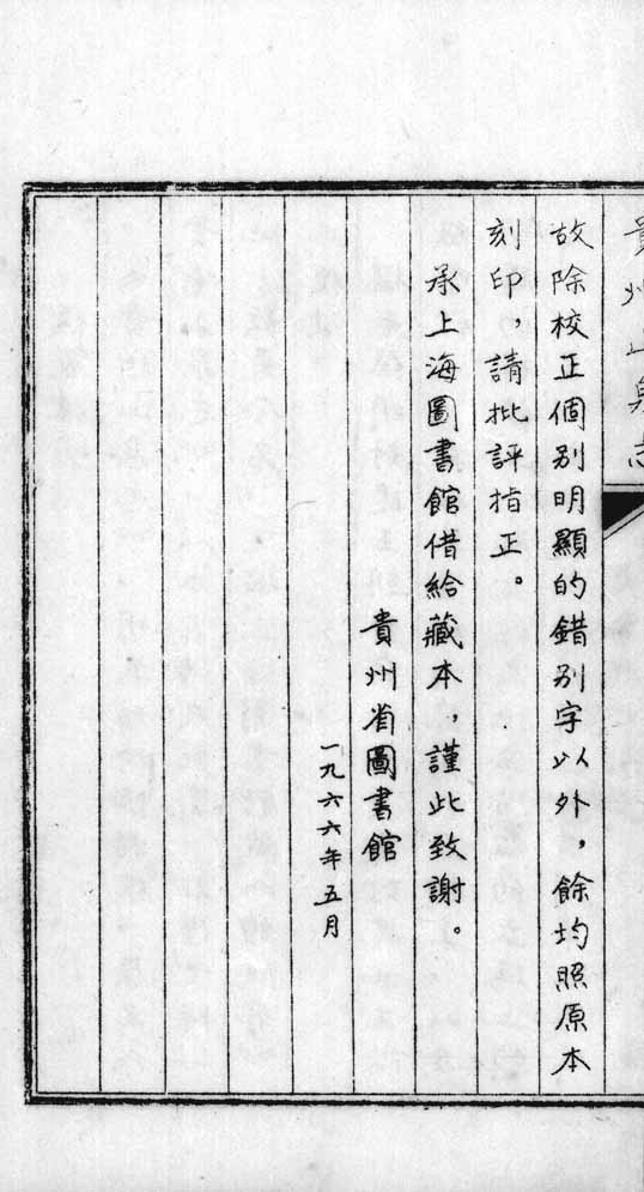 貴州山泉志
故除校正個别明顯的錯别字以外，餘均照原本
刻印，請批評指正。
承上海圖書館借給藏本，謹此致謝。
貴州省圖書館
一九六六年五月